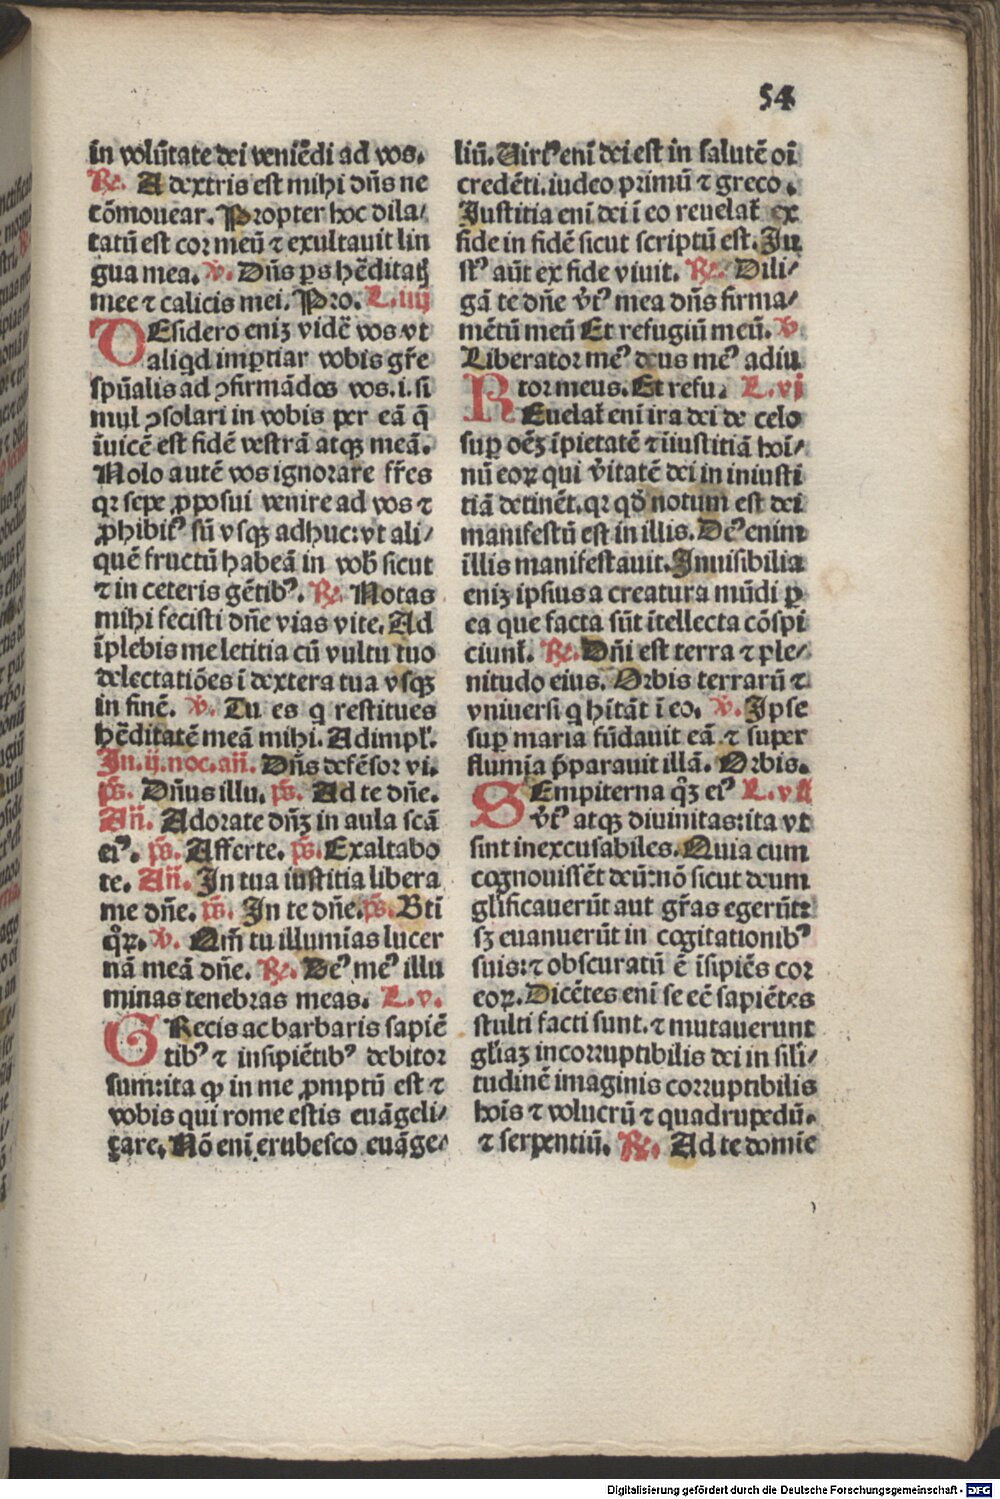 54
in volūtate dei veniēdi ad vos.
R̄. A dextris est mihi dn̄s ne
cōmouear. Propter hoc dila/
tatū est cor meū ⁊ exultauit lin
gua mea. v̄. Dn̄s ps hēditatꝭ
mee ⁊ calicis mei. Pro. L.iiij
DEsidero eniꝫ vidē vos vt
aliqd imꝑtiar vobis gr̄e
spūalis ad ꝯfirmādos vos. i. si
mul ꝯsolari in vobis per eā q̄
īuicē est fidē vestrā atqꝫ meā.
Nolo autē vos ignorare fr̄es
qꝛ sepe ꝓposui venire ad vos ⁊
ꝓhibitꝰ sū vsqꝫ adhuc: vt ali/
quē fructū habeā in vob̄ sicut
⁊ in ceteris gētibꝰ. R̄. Notas
mihi fecisti dn̄e vias vite. Ad
īplebis me letitia cū vultu tuo
delectatiōes ī dextera tua vsqꝫ
in finē. v̄. Tu es q restitues
hēditatē meā mihi. Adimpl'.
In.ij.noc.añ. Dn̄s defēsor vi.
p̄s. Dn̄us illu. p̄s. Ad te dn̄e.
Añ. Adorate dn̄ꝫ in aula scā
eiꝰ. p̄s. Afferte. p̄s. Exaltabo
te. Añ. In tua iustitia libera
me dn̄e. p̄s. In te dn̄e. p̄s. Bti
qꝛ̄. v̄. Qm̄ tu illumīas lucer
nā meā dn̄e. R̄. Deꝰ meꝰ illu
minas tenebras meas. L.v.
GRecis ac barbaris sapiē
tibꝰ ⁊ insipiētibꝰ debitor
sum: ita ꝙ in me ꝓmptū est ⁊
vobis qui rome estis euāgeli/
zare. Nō eni erubesco euāge/
liū. Uirtꝰ enī dei est in salutē oī
credēti. iudeo primū ⁊ greco.
Iustitia enī dei ī eo reuelat̄ ex
fide in fidē sicut scriptū est. Iu
stꝰ aūt ex fide viuit. R̄. Dili/
gā te dn̄e v̄tꝰ mea dn̄s firma/
mētū meū Et refugiū meū. v̄
Liberator meꝰ deus meꝰ adiu
tor meus. Et refu. L.vj
REuelat̄ enī ira dei de celo
suꝑ oēꝫ īpietatē ⁊ īiustitiā hoī/
nū eoꝝ qui v̄itatē dei in iniusti
tiā detinēt. qꝛ qd̄ notum est dei
manifestū est in illis. Deꝰ enim
illis manifestauit. Inuisibilia
eniꝫ ipsius a creatura mūdi ꝑ
ea que facta sūt ītellecta cōspi
ciunt̄. R̄. Dn̄i est terra ⁊ ple/
nitudo eius. Orbis terrarū ⁊
vniuersi q hītāt ī eo. v̄. Ipse
suꝑ maria fūdauit eā ⁊ super
flumīa p̄parauit illā. Orbis.
SEmpiterna qꝫ̄ eiꝰ L.vij
v̄tꝰ atqꝫ diuinitas: ita vt
sint inexcusabiles. Quia cum
cognouissēt deū: nō sicut deum
glīficauerūt aut gr̄as egerūt:
sꝫ euanuerūt in cogitationibꝰ
suis: ⁊ obscuratū ē īsipiēs cor
eoꝝ. Dicētes enī se eē sapiētes
stulti facti sunt. ⁊ mutauerunt
gl'iaꝫ incorruptibilis dei in sil'i/
tudinē imaginis corruptibilis
hoīs ⁊ volucrū ⁊ quadrupedū.
⁊ serpentiū. R̄. Ad te domīe
Digitalisierung gefördert durch die Deutsche Forschungsgemeinschaft - DFG